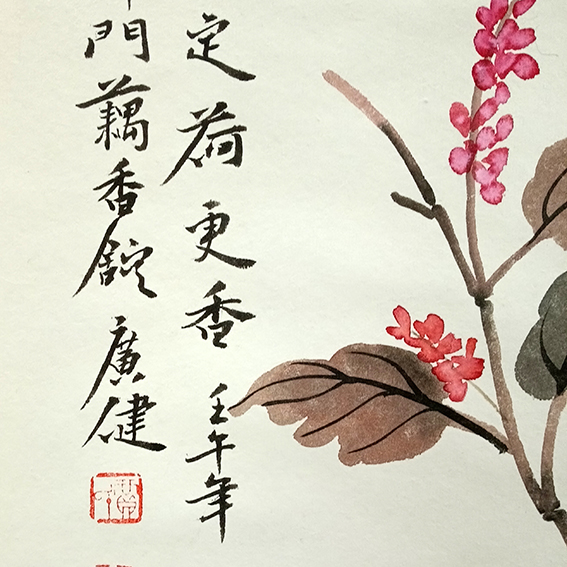 定荷更香 壬午年
門藕香館廣健